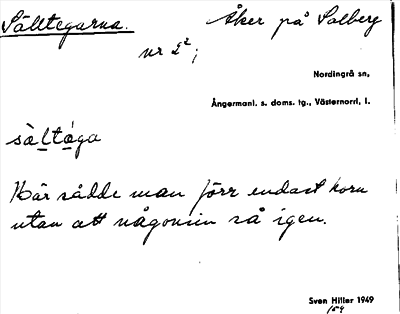 Sälltegarna. Åker på Salberg
nr 2²;
Nordingrå sn,
Ångermanl. s. doms. tg., Västernorrl. l.
sàltága
Här sådde man förr endast korn
utan att någonsin så igen.
Sven Hiller 1949